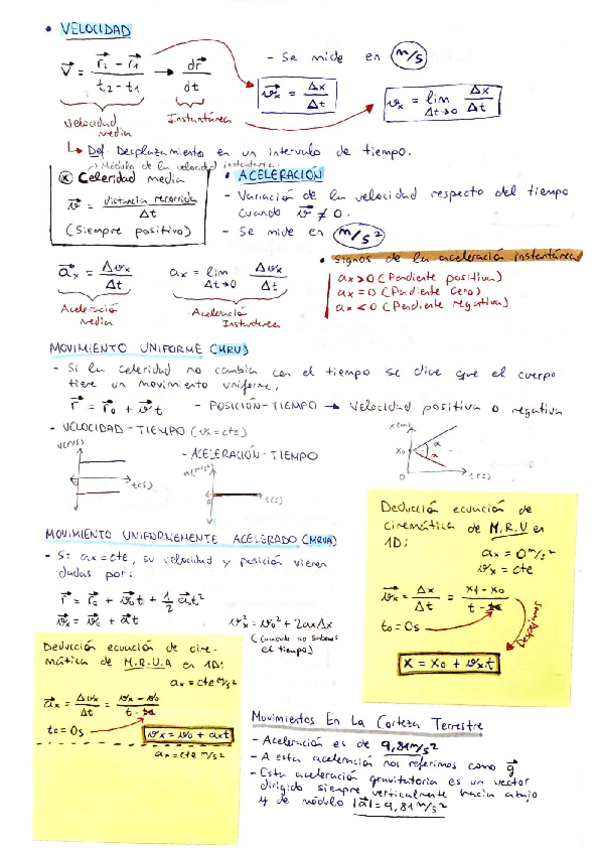 • VELOCIDAD
v⃗ = (r⃗₂ - r⃗₁)/(t₂ - t₁) → dr⃗/dt
- Se mide en m/s
v⃗x = Δx/Δt
vx = lim Δt→0 Δx/Δt
Velocidad media
Instantánea
↳ Def. Desplazamiento en un intervalo de tiempo.
→ Módulo de la velocidad instantánea.
Celeridad media
v⃗ = distancia recorrida/Δt
(Siempre positivo)
• ACELERACIÓN
- Variación de la velocidad respecto del tiempo
cuando v⃗ ≠ 0.
- Se mide en m/s²
a⃗x = Δvx/Δt
ax = lim Δt→0 Δvx/Δt
Aceleración Media
Aceleración Instantánea
• Signos de la aceleración instantánea
ax>0 (Pendiente positiva)
ax=0 (Pendiente Cero)
ax<0 (Pendiente negativa)
MOVIMIENTO UNIFORME (MRU)
- Si la celeridad no cambia con el tiempo se dice que el cuerpo
tiene un movimiento uniforme,
r⃗ = r⃗₀ + v⃗t
- POSICIÓN-TIEMPO → Velocidad positiva o negativa
- VELOCIDAD-TIEMPO (vx=cte)
v(m/s)
t(s)
- ACELERACIÓN-TIEMPO
a(m/s²)
0
t(s)
x(m)
x₀
α
α
0
t(s)
MOVIMIENTO UNIFORMEMENTE ACELERADO (MRUA)
- Si ax=cte, su velocidad y posición vienen
dadas por:
r⃗ = r⃗₀ + v⃗₀t + 1/2 a⃗t²
v⃗x = v⃗₀ + a⃗t
v⃗x² = v₀² + 2axΔx
(cuando no sabemos
el tiempo)
Deducción ecuación de
cinemática de M.R.U en
1D:
ax = 0 m/s²
vx = cte
v⃗x = Δx/Δt = (xf - x₀)/(t - t₀)
t₀ = 0s
Despejamos
x = x₀ + v⃗xt
Deducción ecuación de cine-
mática de M.R.U.A en 1D:
ax = cte m/s²
a⃗x = Δvx/Δt = (vx - v₀)/(t - t₀)
t₀ = 0s
vx = v₀ + axt
ax = cte m/s²
Movimientos En La Corteza Terrestre
- Aceleración es de 9,81 m/s²
- A esta aceleración nos referimos como g⃗
- Esta aceleración gravitatoria es un vector
dirigido siempre verticalmente hacia abajo
y de módulo |a⃗| = 9,81 m/s²